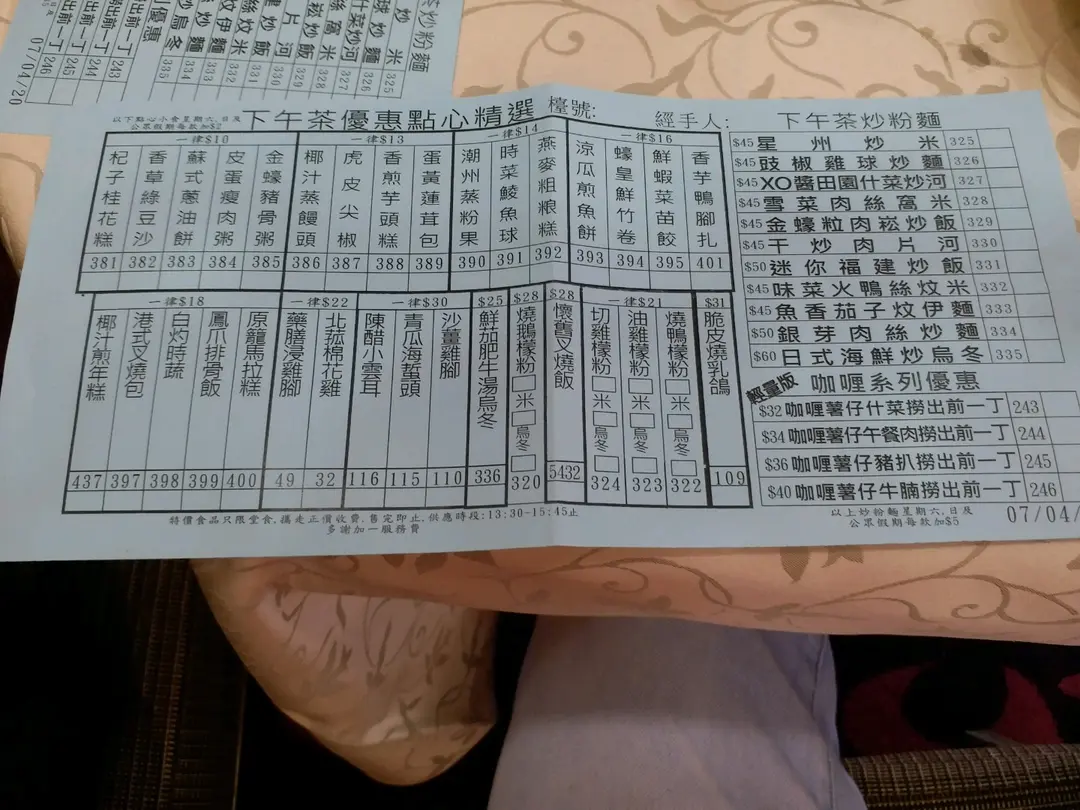 下午茶優惠點心精選
以下點心小食星期六,日及
公眾假期每款加$2
檯號:
經手人:
一律$10
杞子桂花糕 381
香草綠豆沙 382
蘇式蔥油餅 383
皮蛋瘦肉粥 384
金蠔豬骨粥 385
一律$13
椰汁蒸饅頭 386
虎皮尖椒 387
香煎芋頭糕 388
蛋黃蓮茸包 389
一律$14
潮州蒸粉果 390
時菜鯪魚球 391
燕麥粗粮糕 392
一律$16
涼瓜煎魚餅 393
蠔皇鮮竹卷 394
鮮蝦菜苗餃 395
香芋鴨腳扎 401
一律$18
椰汁煎年糕 437
港式叉燒包 397
白灼時蔬 398
鳳爪排骨飯 399
原籠馬拉糕 400
一律$22
藥膳浸雞腳 49
北菰棉花雞 32
一律$30
陳醋小雲耳 116
青瓜海蜇頭 115
沙薑雞腳 110
$25
鮮茄肥牛湯烏冬 336
$28
燒鵝檬粉 米 烏冬 320
$28
懷舊叉燒飯 5432
一律$21
切雞檬粉 米 烏冬 324
油雞檬粉 米 烏冬 323
燒鴨檬粉 米 烏冬 322
$31
脆皮燒乳鴿 109
特價食品只限堂食,攜走正價收費,售完即止,供應時段:13:30-15:45止
多謝加一服務費
下午茶炒粉麵
$45 星州炒米 325
$45 豉椒雞球炒麵 326
$45 XO醬田園什菜炒河 327
$45 雪菜肉絲窩米 328
$45 金蠔粒肉崧炒飯 329
$45 干炒肉片河 330
$50 迷你福建炒飯 331
$45 味菜火鴨絲炆米 332
$45 魚香茄子炆伊麵 333
$50 銀芽肉絲炒麵 334
$60 日式海鮮炒烏冬 335
輕量版 咖喱系列優惠
$32 咖喱薯仔什菜撈出前一丁 243
$34 咖喱薯仔午餐肉撈出前一丁 244
$36 咖喱薯仔豬扒撈出前一丁 245
$40 咖喱薯仔牛腩撈出前一丁 246
以上炒粉麵星期六,日及
公眾假期每款加$5
07/04/
炒粉麵
炒米 325
球炒麵 326
什菜炒河 327
絲窩米 328
崧炒飯 329
片河 330
炒飯 331
絲炆米 332
炆伊麵 333
炒麵 334
炒烏冬 335
優惠
出前一丁 243
出前一丁 244
出前一丁 245
出前一丁 246
07/04/20